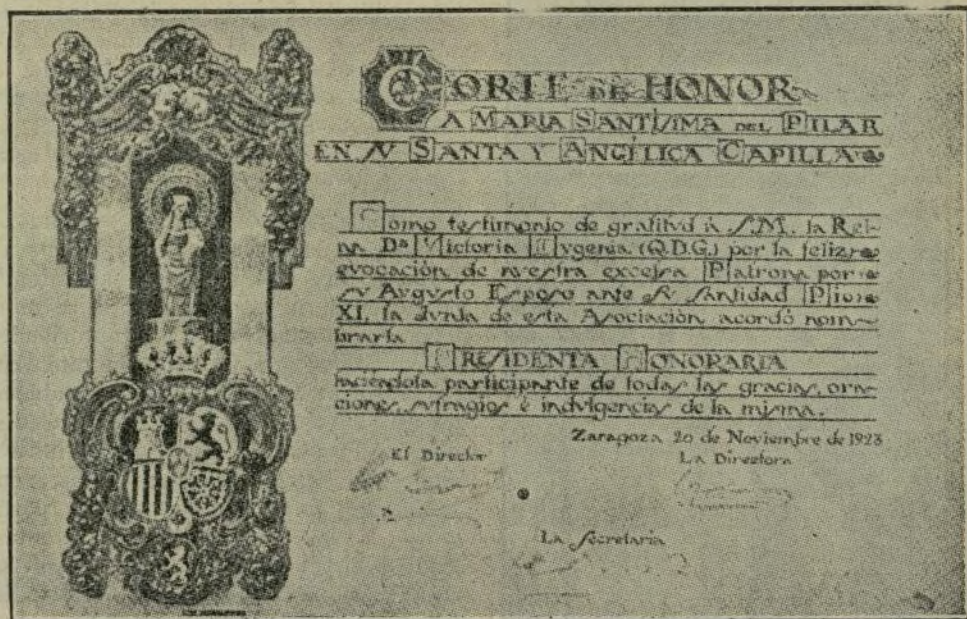 CORTE DE HONOR
A MARIA SANTÍSIMA DEL PILAR
EN SV SANTA Y ANGÉLICA CAPILLA
Como testimonio de gratitvd á S.M. la Rei-
na Dª Victoria Evgenia (Q.D.G.) por la feliz
evocación de nvestra excelsa Patrona por
sv Avgvsto Esposo ante sv Santidad Pio
XI, la Jvnta de esta Asociación acordó nom-
brarla
PRESIDENTA HONORARIA
haciéndola participante de todas las gracias, ora-
ciones, svfragios é indvlgencias de la misma.
Zaragoza 20 de Noviembre de 1923
El Director
La Directora
La Secretaria